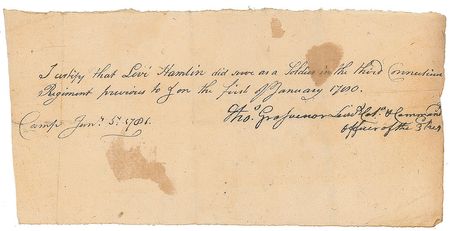 I certify that Levi Hamlin did serve as a Soldier in the third Connecticut
Regiment previous to & on the first of January 1780.
Thoˢ Grosvenor Lieuᵗ Colˡ & Command
Camp Janʸ 5ᵗ 1781. officer of the 3ᵈ Reg